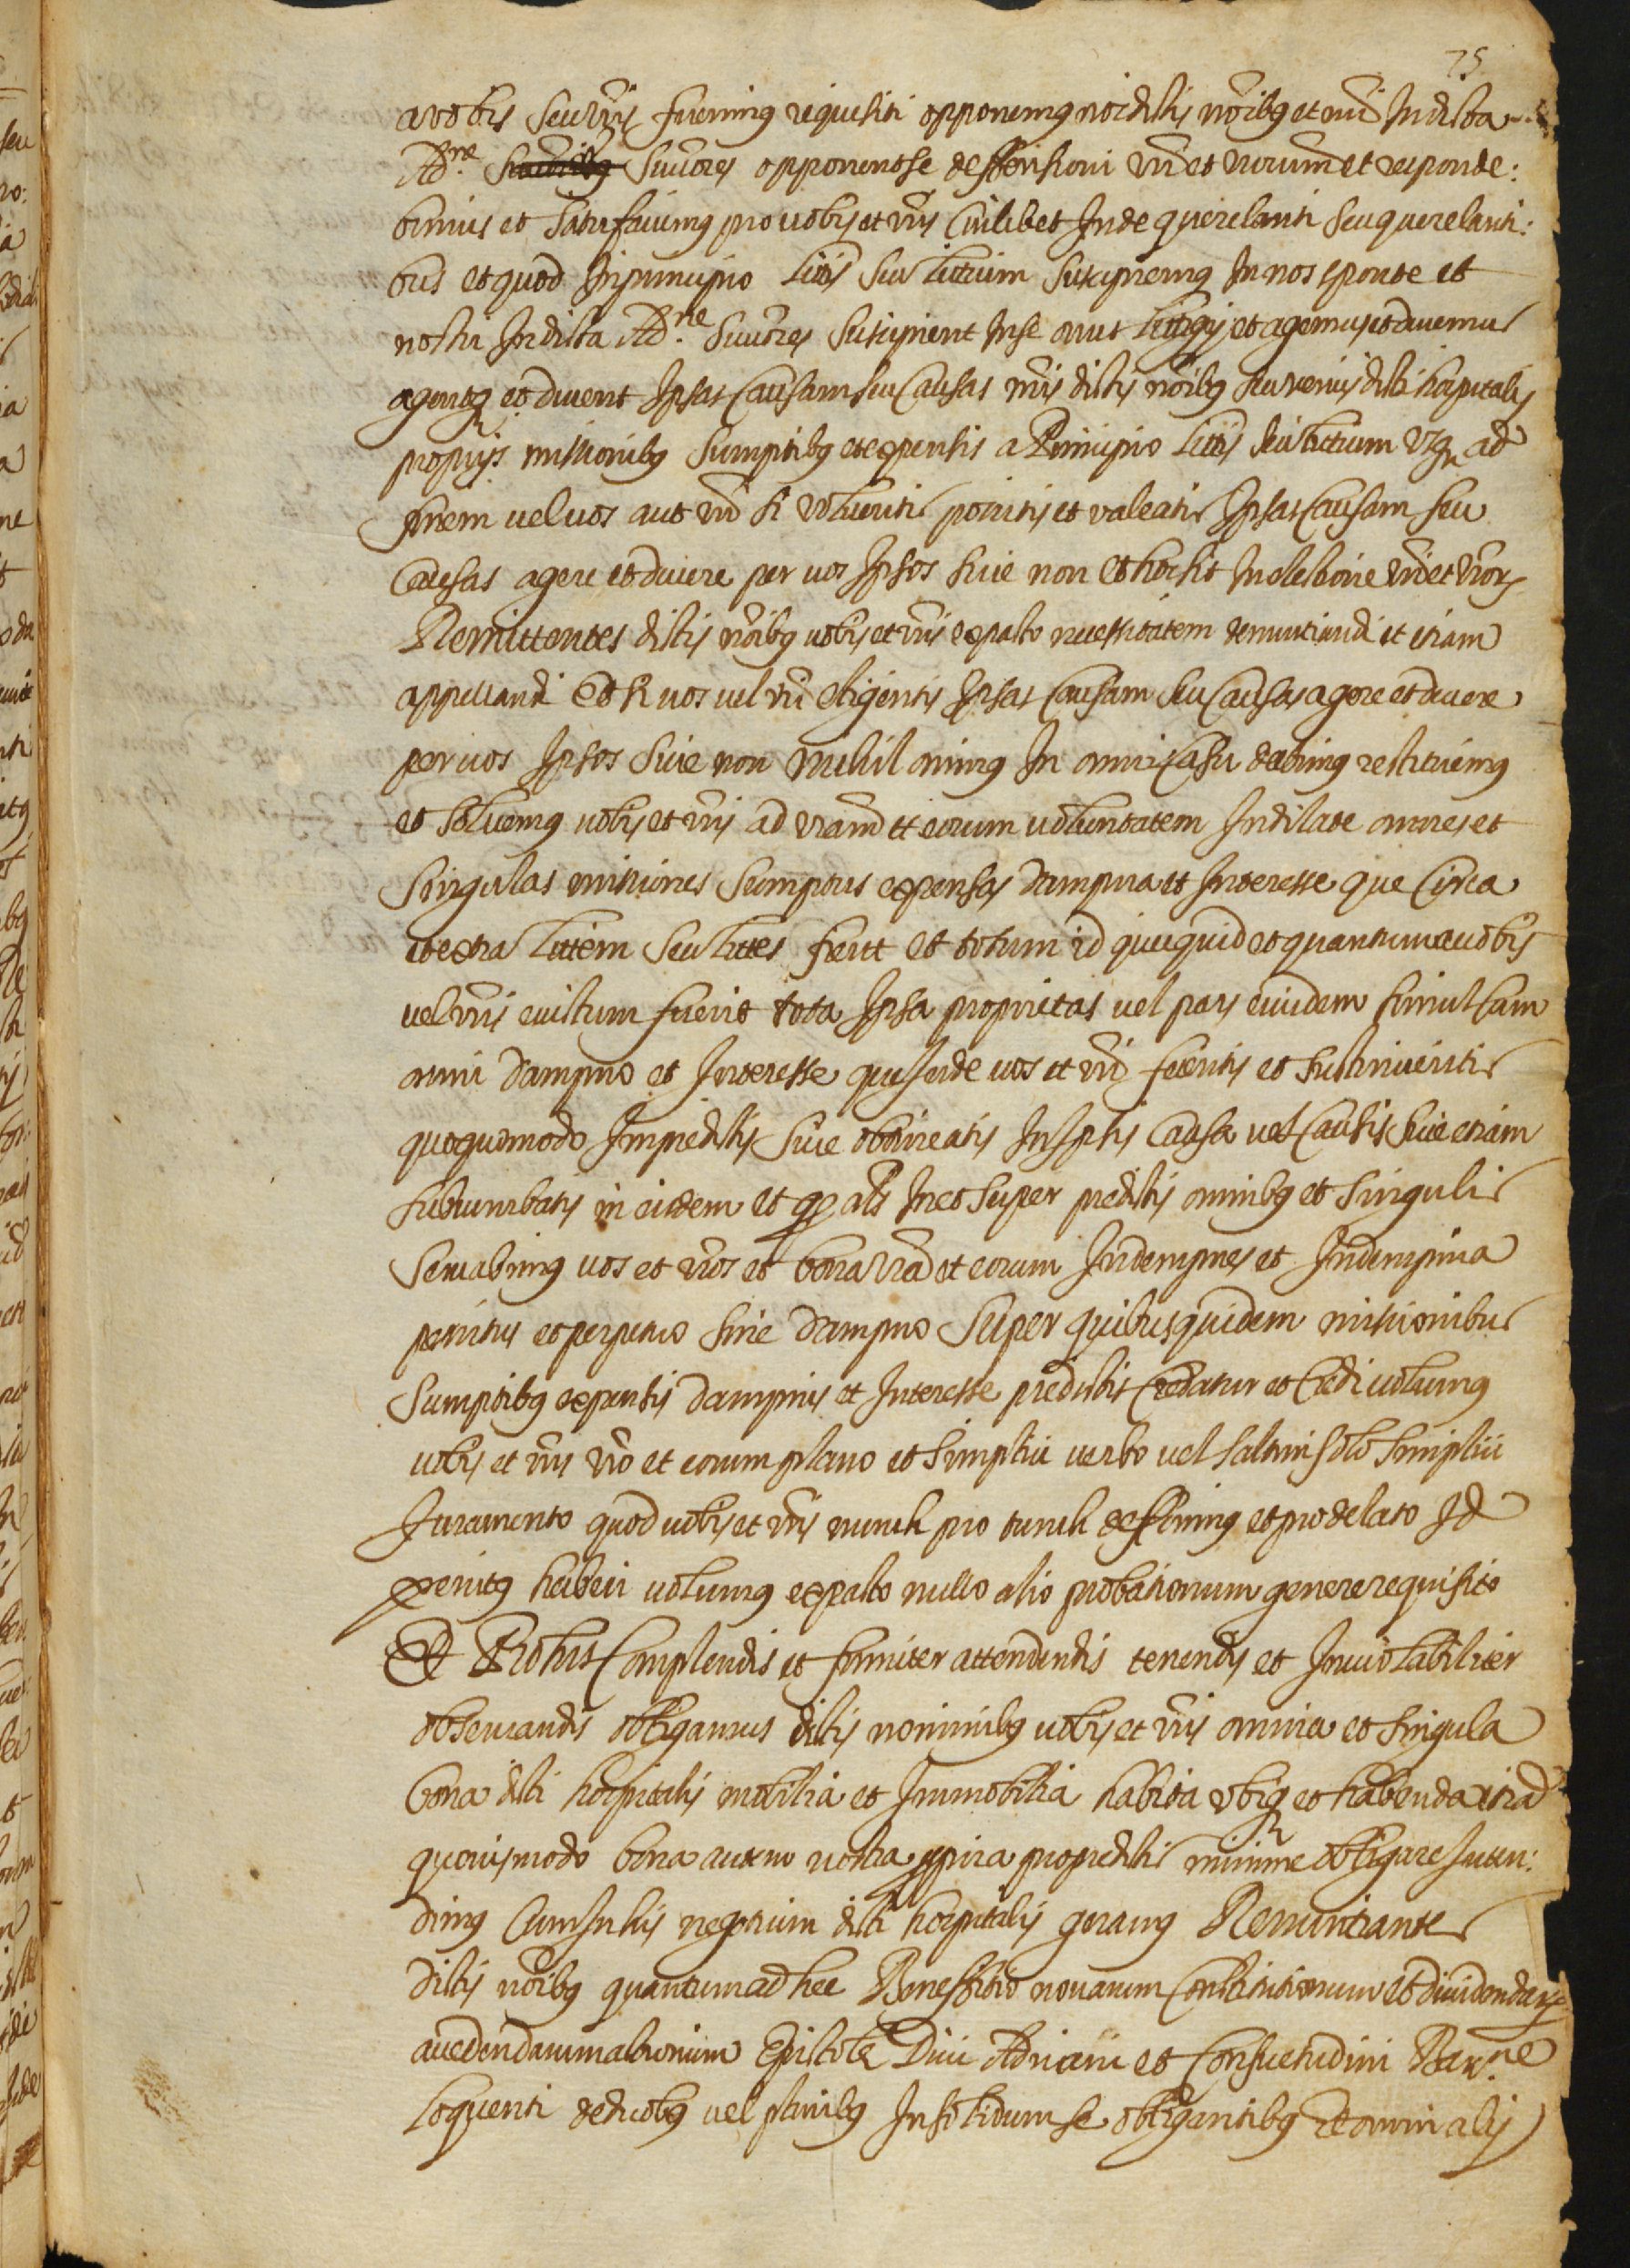 75
a vobis seu vr̃is fuerimus requisiti opponemus nos dictis nōibus et nr̃i In dicta
Ad.ne Succores opponent se deffensioni vr̃i et vr̃orum et responde:
bimus et satisfaciemus pro vobis et vr̃is Cuilibet Inde querelanti seu querelanti:
bus et quod In principio litis seu litium suscipiemus In nos sponte et
nostri In dicta Ad.ne Succores suscipient In se onus litigij et agemus et ducemus
agentque et ducent Ipsas Causam seu Causas nr̃is dictis nōibus seu verius dicti hospitalis
proprijs missionibus sumptibus et expensis a Principio litis seu litium usque ad
finem vel vos aut vr̃i si volueritis possitis et valeatis Ipsas Causam seu
Causas agere et ducere per vos Ipsos sive non et hoc sit In electione vr̃i et vr̃orum
Remittentes dictis nōibus vobis et vr̃is ex pacto necessitatem denuntiandi et etiam
appellandi Et si vos vel vr̃i eligeritis Ipsas Causam seu Causas agere et ducere
per vos Ipsos sive non nihil ominus In omni Casu dabimus restituemus
et solvemus vobis et vr̃is ad vr̃am et eorum voluntatem Indilate omnes et
singulas missiones sumptus expensas dampna et Interesse que Circa
et extra litem seu lites fient et totum id quicquid et quantum a vobis
vel vr̃is evictum fuerit tota Ipsa proprietas vel pars eiusdem simul Cum
omni dampno et Interesse que Inde vos et vr̃i feceritis et sustinueritis
quoquomodo Impredictis sive obtineatis In Iptis Causa vel Causis sive etiam
subcumbatis in eisdem et als In et super predictis omnibus et singulis
servabimus vos et vr̃os et bona vr̃a et eorum Indempnes et Indempnia
penitus et perpetuo sine dampno Super quibusquidem missionibus
sumptibus expensis dampnis et Interesse predictis Credatur et Credi volumus
vobis et vr̃is vr̃o et eorum plano et simplici verbo vel saltim solo simplici
Juramento quod vobis et vr̃is nunch pro tunch defferimus et pro delato Id
penitus haberi volumus ex pacto nullo alio probationum genere requisito
Et Pro his Complendis et firmiter attendendis tenendis et Inviolabiliter
observandis obligamus dictis nominibus vobis et vr̃is omnia et singula
bona dicti hospitalis mobilia et Immobilia habita ubique et habenda etiam
quovismodo bona autem nostra ppria pro predictis minime obligare Inten:
dimus Cum In his negotium dicti hospitalis geramus Renuntiantes
dictis nōibus quantum ad hec Benefficio novarum Constitutionum et dividendarum
a cedendarum actionum Epistole Divi Adriani et Consuetudini Bar.ne
loquenti de duobus vel pluribus In solidum se obligantibus et omni alij